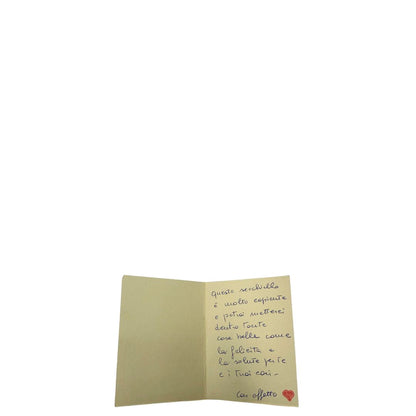 Questo secchiello
è molto capiente
e potrai metterci
dentro tante
cose belle come
la felicità e
la salute per te
e i tuoi cari -
Con affetto